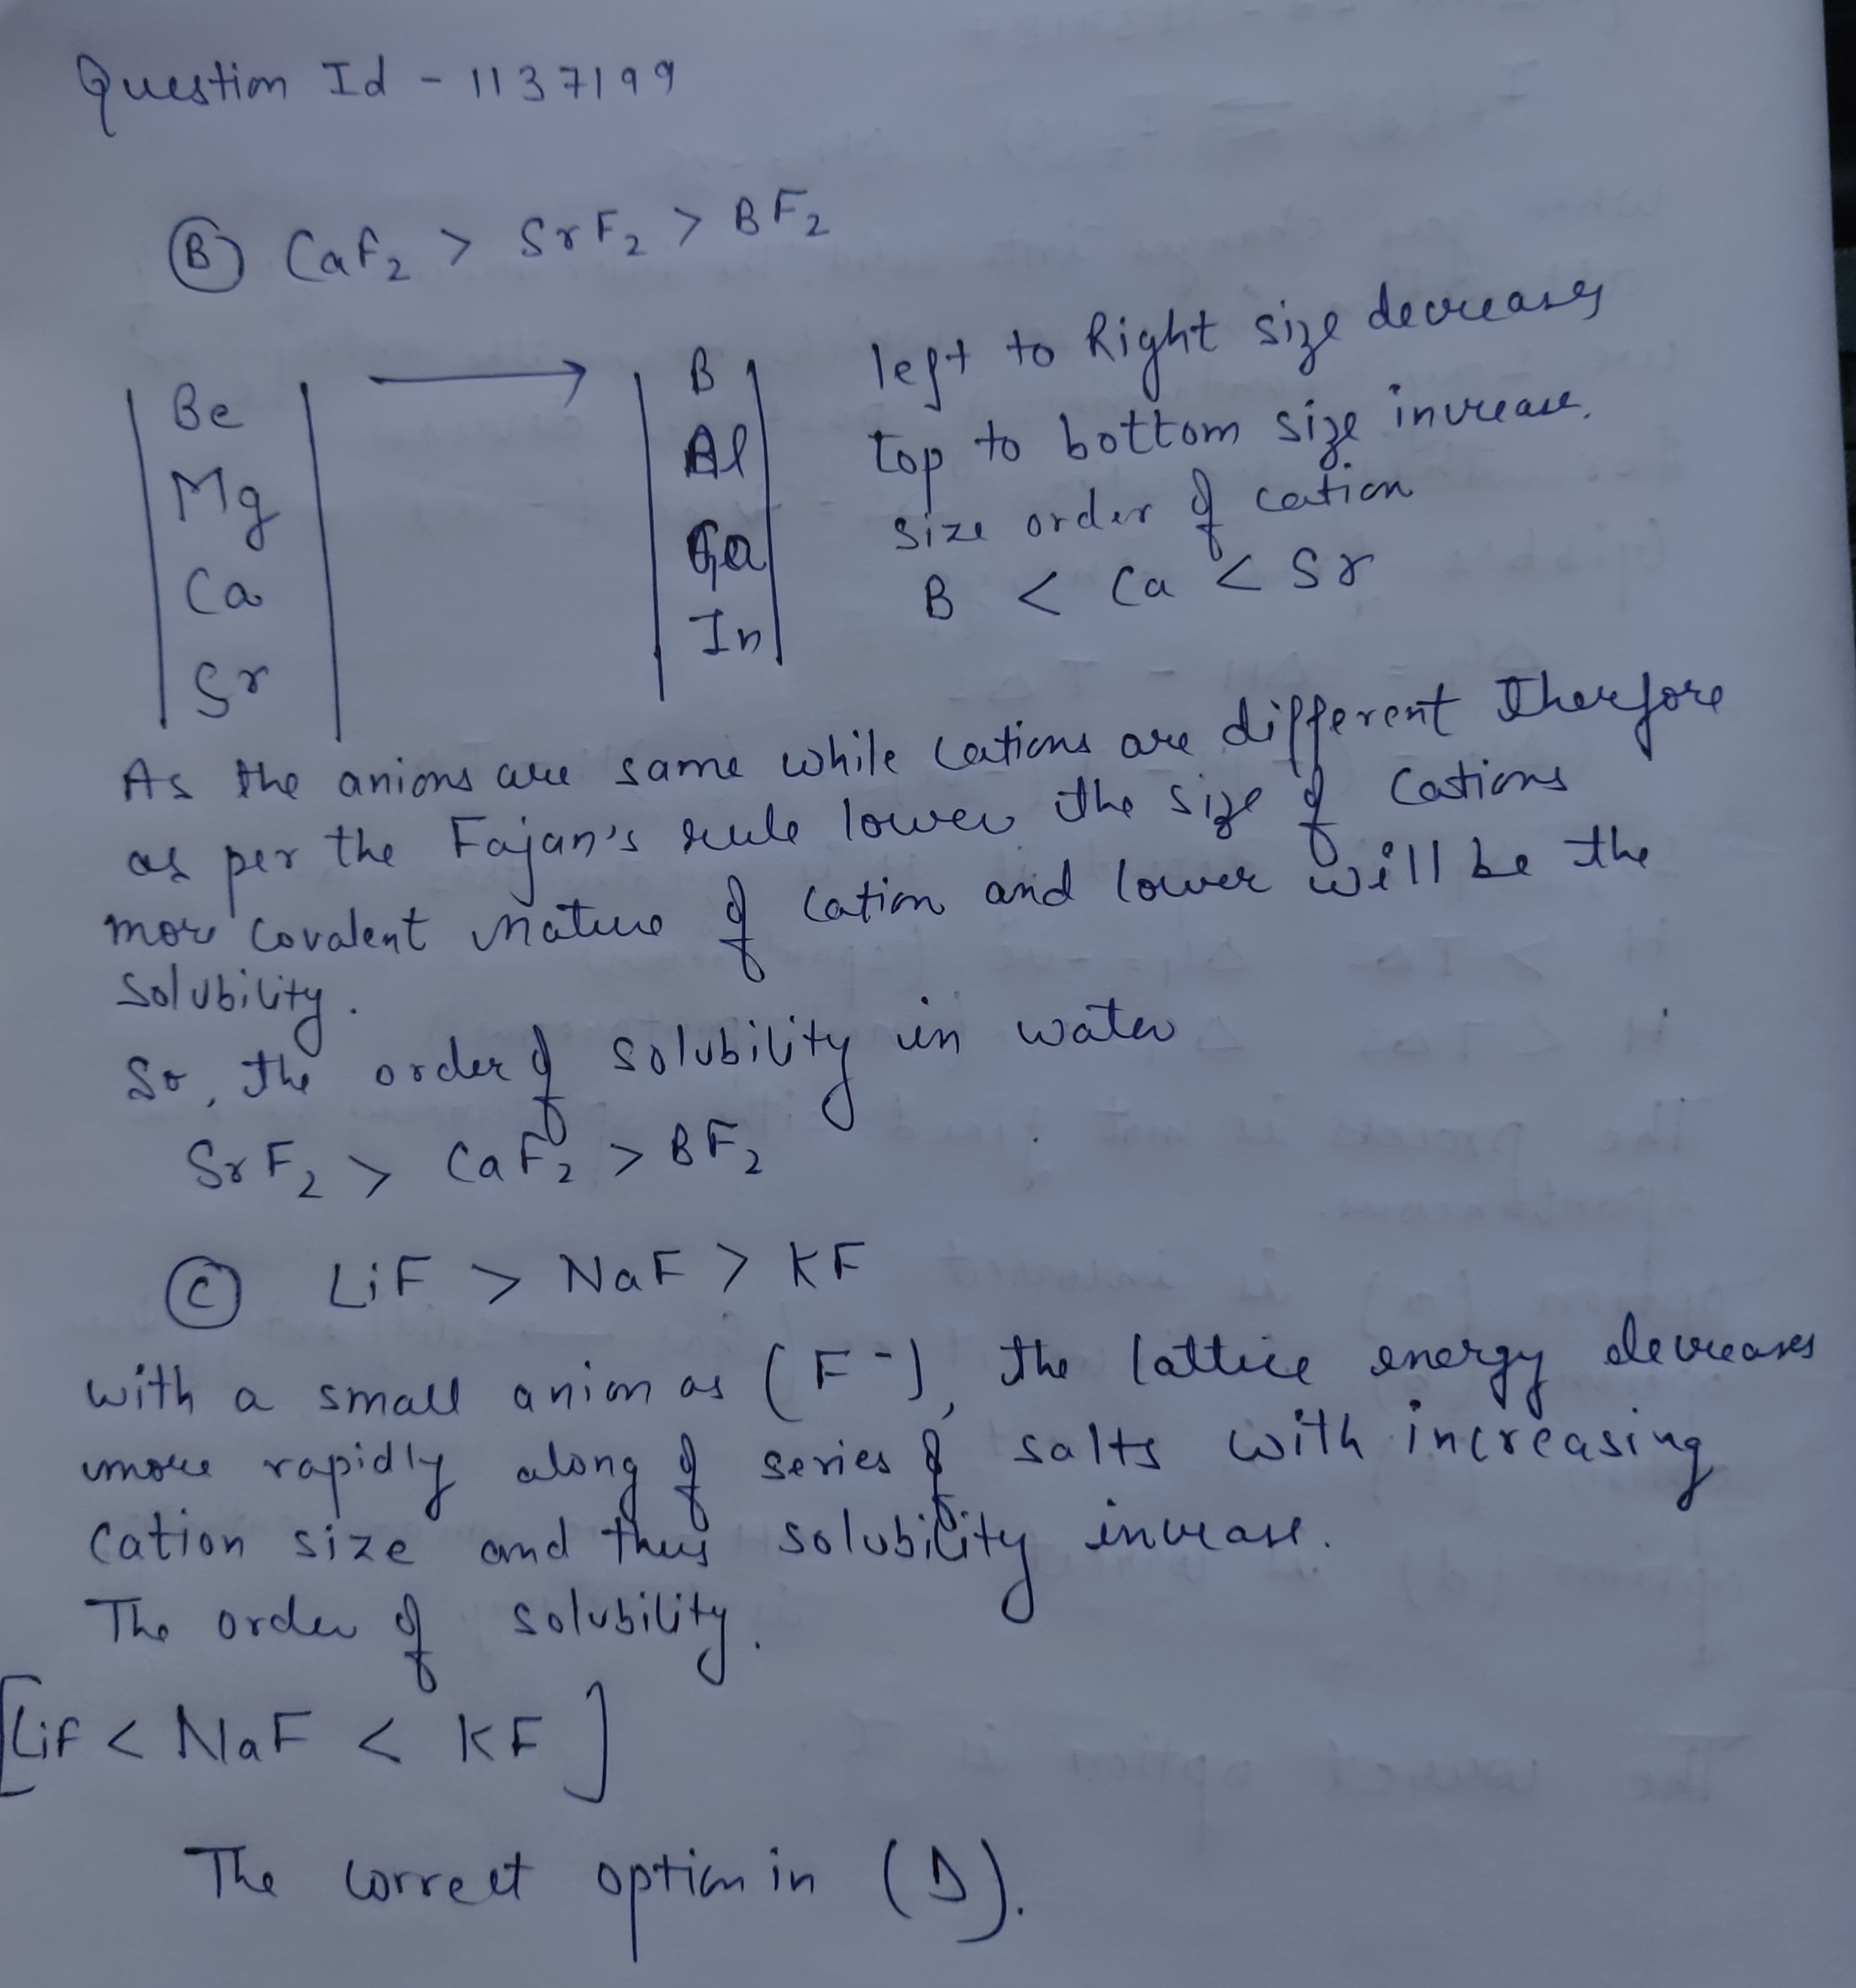 Question Id - 1137199
(B) CaF2 > SrF2 > BF2
Be
Mg
Ca
Sr
B
Al
Ga
In
left to Right size decreases
top to bottom size increase.
size order of cation
B < Ca < Sr
As the anions are same while cations are different therefore
as per the Fajan's rule lower the size of cations
more covalent nature of cation and lower will be the
solubility.
So, the order of solubility in water
SrF2 > CaF2 > BF2
(C) LiF > NaF > KF
with a small anion as (F-), the lattice energy decreases
more rapidly along of series of salts with increasing
cation size and thus solubility increase.
The order of solubility.
[LiF < NaF < KF]
The correct option in (D).